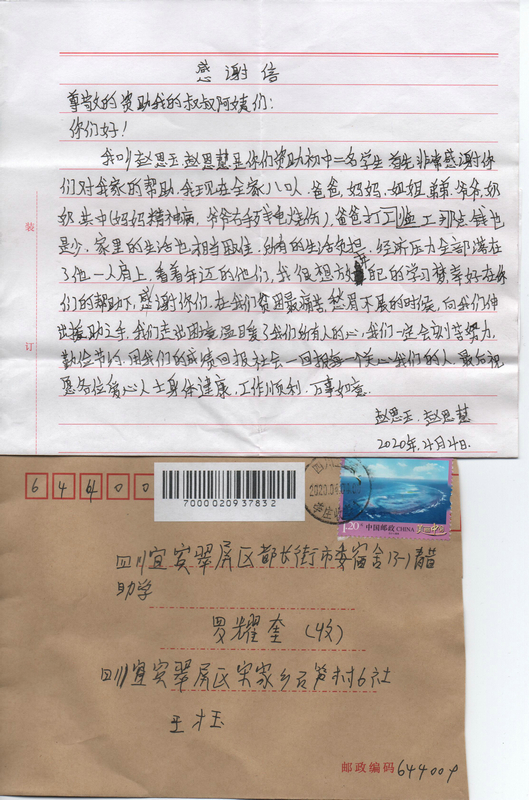 感谢信
尊敬的资助我的叔叔阿姨们：
你们好！
我叫赵思玉 赵思慧是你们资助初中二名学生 首先非常感谢你
们对我家的帮助，我现在全家八口人，爸爸，妈妈，姐姐 弟弟 爷爷，奶
奶 其中（妈妈精神病，爷爷右手残电烧伤），爸爸打工 临工 那点钱也
是少，家里的生活也相当艰住，所有的生活负担，经济压力全部落在
了他一人肩上，看着年迈的他们，我很想放弃自己的学习 幸好在你
们的帮助下，感谢你们，在我们贫困最痛苦 愁眉不展的时候，向我们伸
出援助之手，我们走出困境温暖了我们所有人的心，我们一定会刻苦努力，
勤俭节约，用我们的成绩回报社会一回报每一个关心我们的人 最后祝
愿各位爱心人士身体健康，工作顺利，万事如意。
赵思玉．赵思慧
2020年4月4日．
装
订
64400
7000020937832
2020.04.0
1.20元 中国邮政 CHINA
四川宜宾翠屏区都长街市委宿舍13-1青醋
助学
罗耀奎（收）
四川宜宾翠屏区宋家乡石笋村6社
王才玉
邮政编码 644009